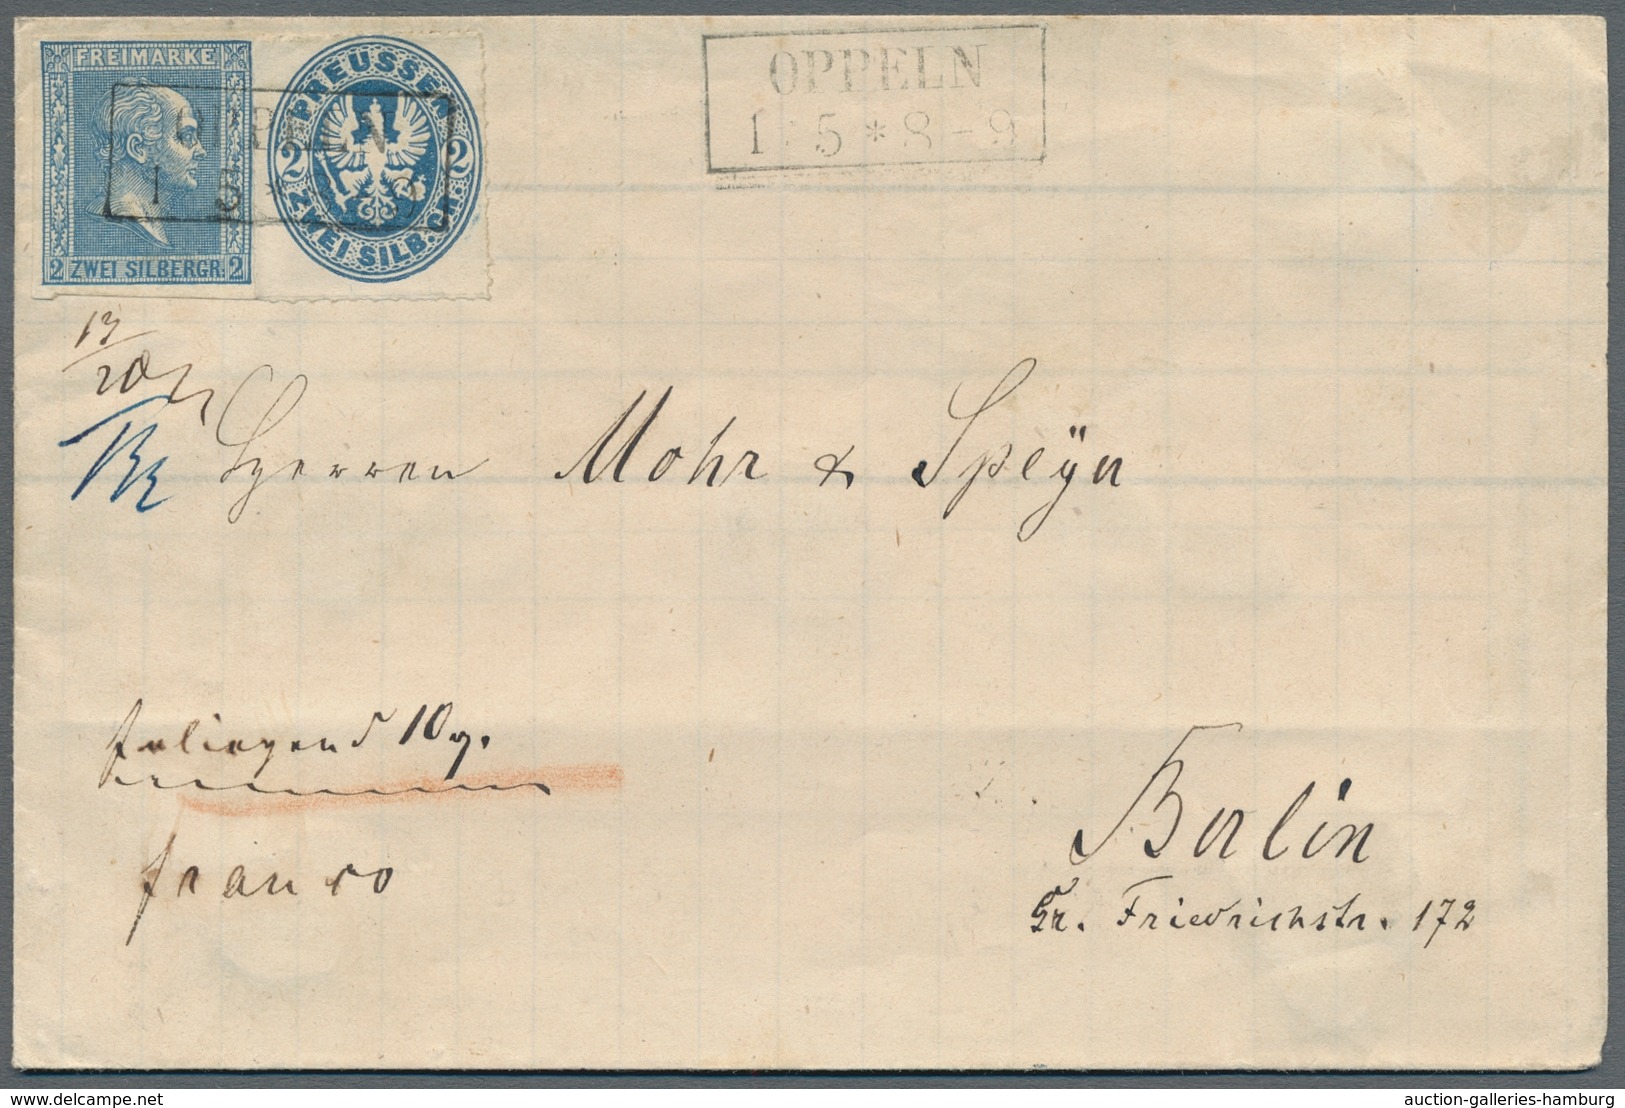 FREIMARKE
2 ZWEI SILBERGR. 2
PREUSSEN
2 2
ZWEI SILB.GR.
OPPELN
1 5 * 8-9
OPPELN
1 5 * 8-9
Herren Mohr & Speÿn
Anliegend 10
franco
Berlin
Gr. Friedrichstr. 172
www.delcampe.com
auction-galleries-hamburg